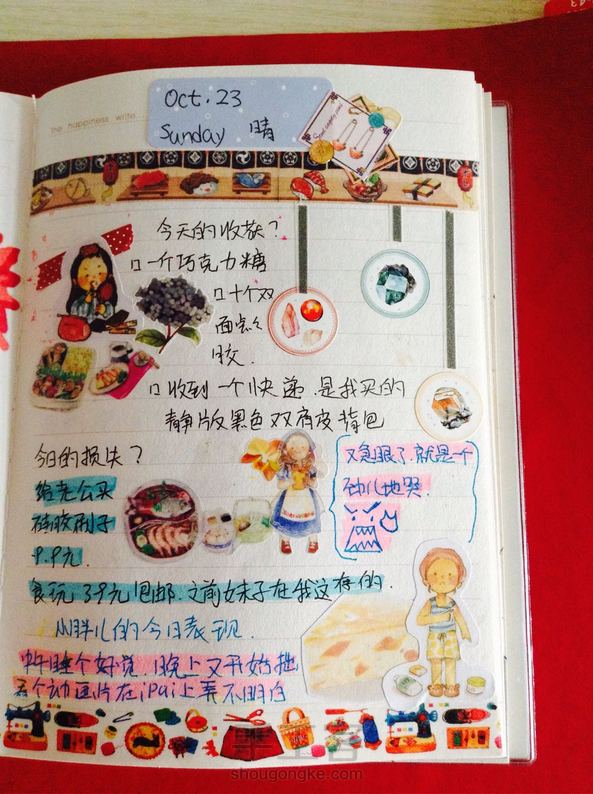 The happiness write
Oct. 23
Sunday 晴
今天的收获？
一个巧克力糖
十个双
面点点
胶.
收到一个快递.是我买的
静版黑色双肩皮背包
今日的损失？
给老公买
硅胶刷子
9.9元.
食玩39元包邮.之前妹子在我这存的.
又急眼了.就是一个
劲儿地哭.
小胖儿的今日表现.
中午睡个好觉.晚上又开始挫
个动画片在iPai上弄不明白
shougongke.com